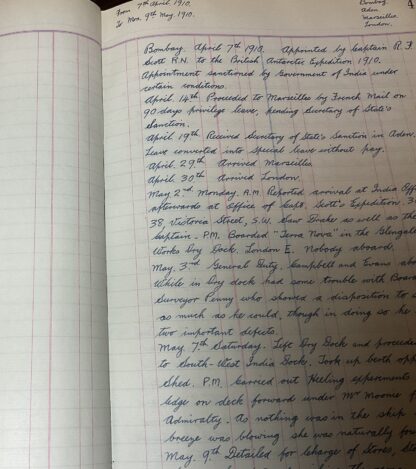 From 7th April 1910.
To Mon. 9th May. 1910.
Bombay.
Aden
Marseilles
London.
4
Bombay. April 7th 1910. Appointed by Captain R. F.
Scott R.N. to the British Antarctic Expedition 1910.
Appointment sanctioned by Government of India under
certain conditions.
April. 14th Proceeded to Marseilles by French Mail on
90 days privilege leave, pending Secretary of State's
Sanction.
April 19th Received Secretary of State's Sanction in Aden.
Leave converted into special leave without pay.
April. 29th Arrived Marseilles.
April. 30th Arrived London.
May 2nd. Monday. A.M. Reported arrival at India Off
afterwards at Office of Capt. Scott's Expedition. 3
38, Victoria Street, S.W. Saw Drake as well as the
Captain. P.M. Boarded "Terra Nova" in the Glengall
Works Dry Dock. London E. Nobody aboard.
May. 3rd General Duty. Campbell and Evans abo
While in Dry dock had some trouble with Board
Surveyor Penny who showed a disposition to
as much as he could, though in doing so he
two important defects.
May 7th Saturday. Left Dry Dock and proceeded
to South-West India Dock. Took up berth opp
Shed. P.M. Carried out Heeling experiments
Ledge on deck forward under Mr
Admiralty. As nothing was in the ship
breeze was blowing she was naturally
May. 9th Detailed for charge of Stores, St